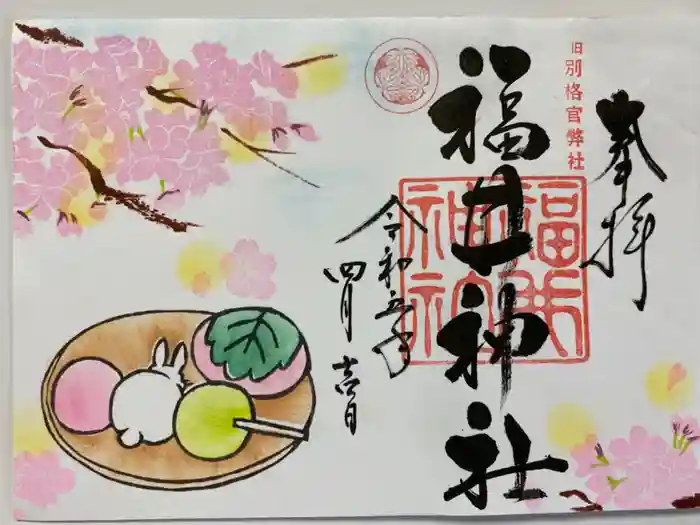 奉拝
旧別格官幣社
福井神社
福井
神社
令和五年
四月吉日